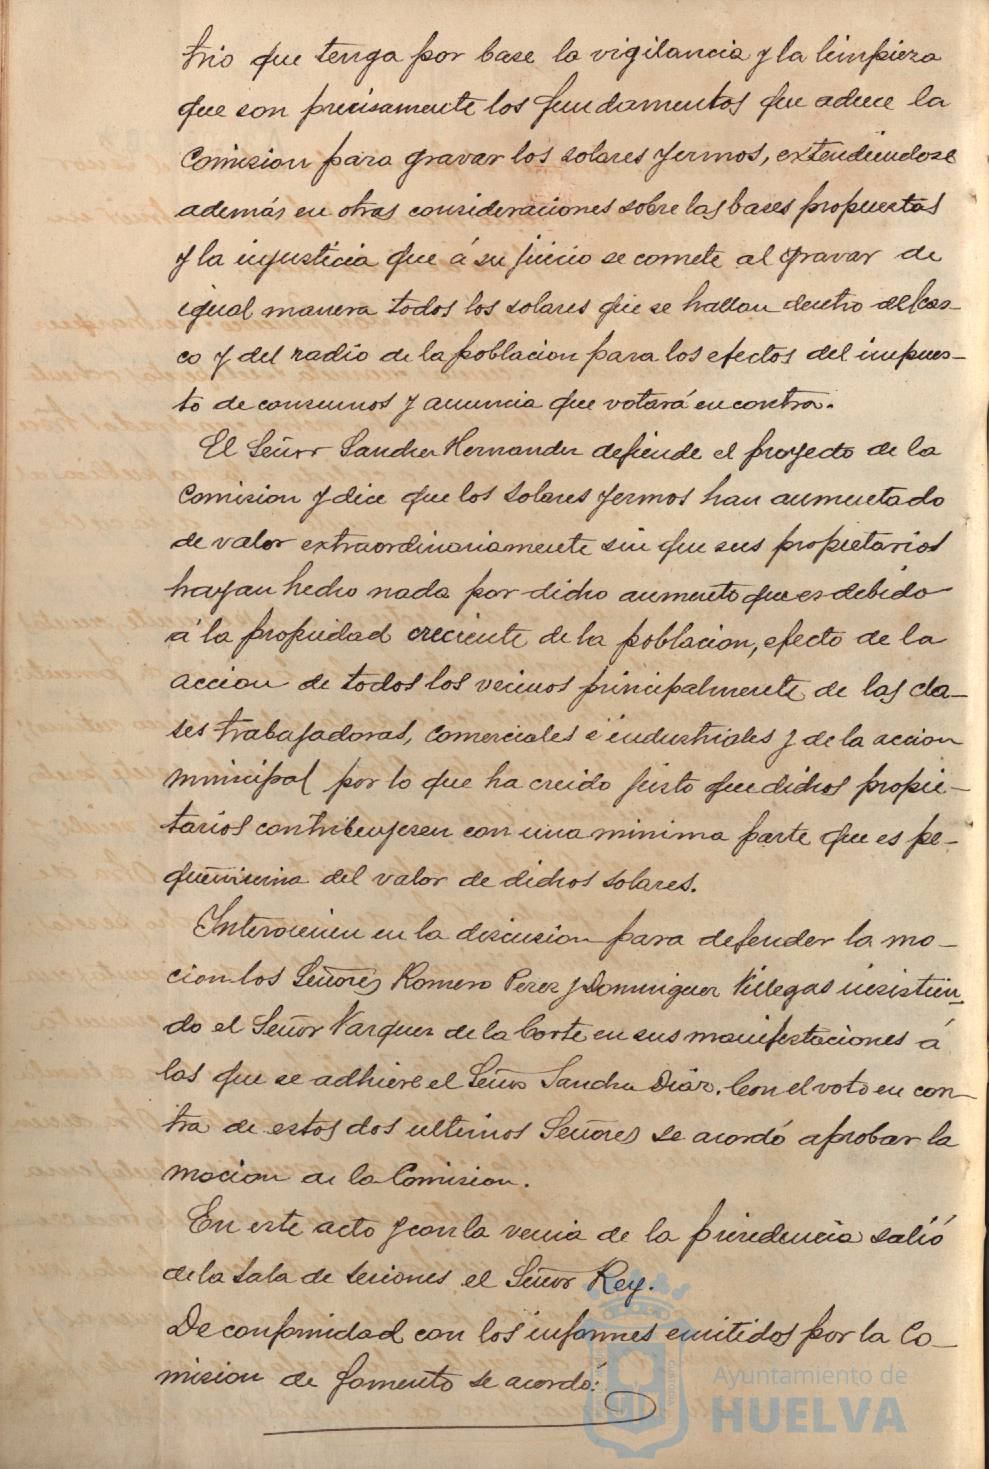 trio que tenga por base la vigilancia y la limpieza
que son precisamente los fundamentos que aduce la
Comision para gravar los solares yermos, extendiendose
además en otras consideraciones sobre las bases propuestas
y la injusticia que á su juicio se comete al gravar de
igual manera todos los solares que se hallan dentro del cas-
co y del radio de la poblacion para los efectos del impues-
to de consumos y anuncia que votará en contra.
El Señor Sanchez Hernandez defiende el proyecto de la
Comision y dice que los solares yermos han aumentado
de valor extraordinariamente sin que sus propietarios
hayan hecho nada por dicho aumento que es debido
á la propiedad creciente de la poblacion, efecto de la
accion de todos los vecinos principalmente de las cla-
ses trabajadoras, comerciales é industriales y de la accion
municipal por lo que ha creido justo que dichos propie-
tarios contribuyesen con una minima parte que es pe-
queñisima del valor de dichos solares.
Intervienen en la discusion para defender la mo-
cion los Señores Romero Perez y Dominguez Villegas insistien-
do el Señor Vazquez de la Corte en sus manifestaciones á
las que se adhiere el Señor Sanchez Diaz. Con el voto en con-
tra de estos dos ultimos Señores se acordó aprobar la
mocion de la Comision.
En este acto y con la venia de la presidencia salió
de la Sala de sesiones el Señor Rey.
De conformidad con los informes emitidos por la Co-
mision de fomento se acordó:
Ayuntamiento de
HUELVA